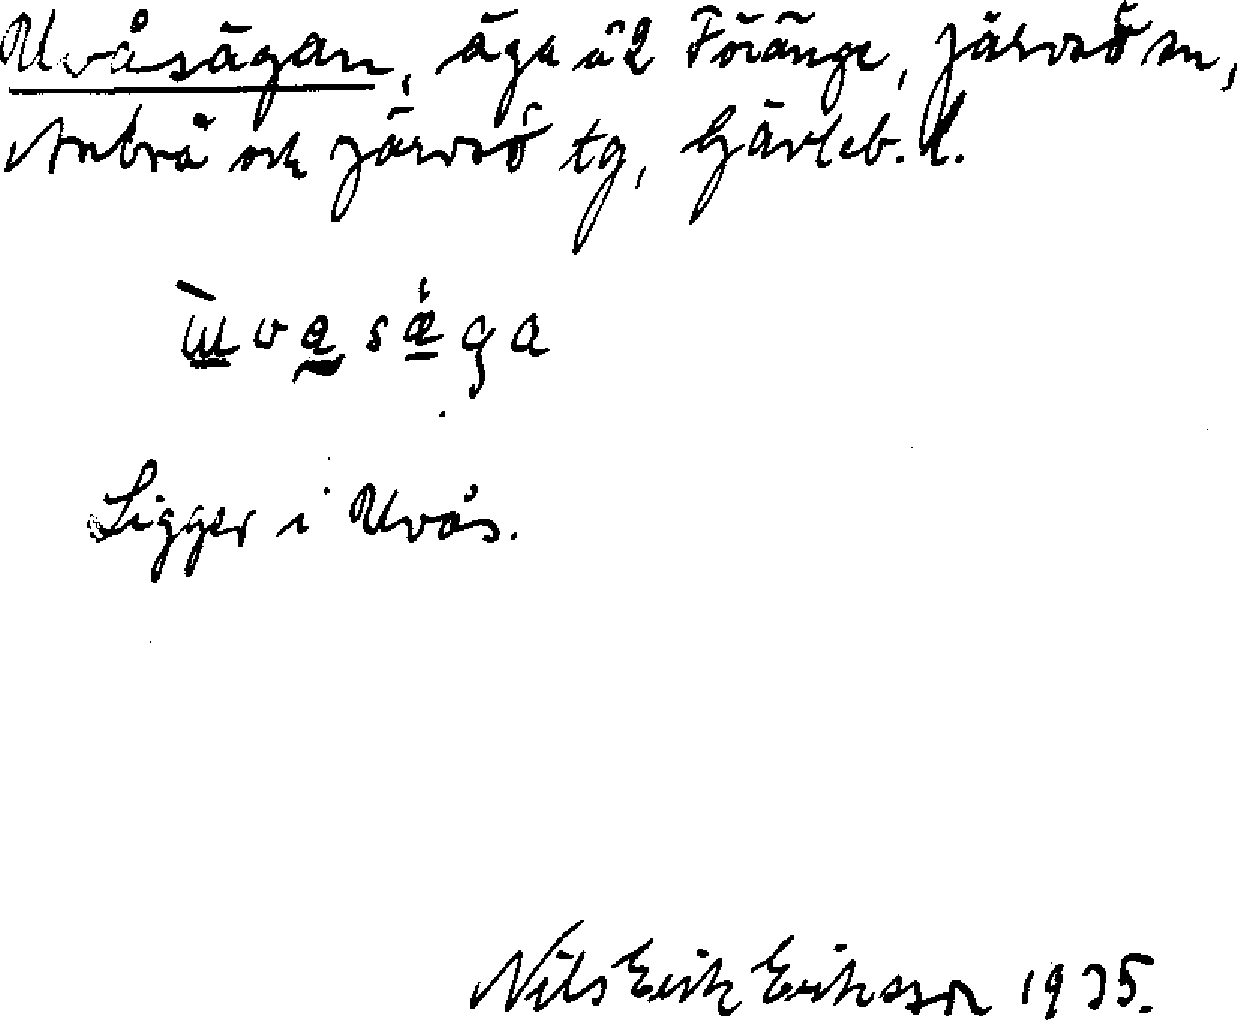 Uvåsägan, äga å 2 Föränge, Järvsö sn,
Arbrå och Järvsö tg, Gävleb. l.
Ligger i Uvås.
Nils Erik Eriksson 1935.